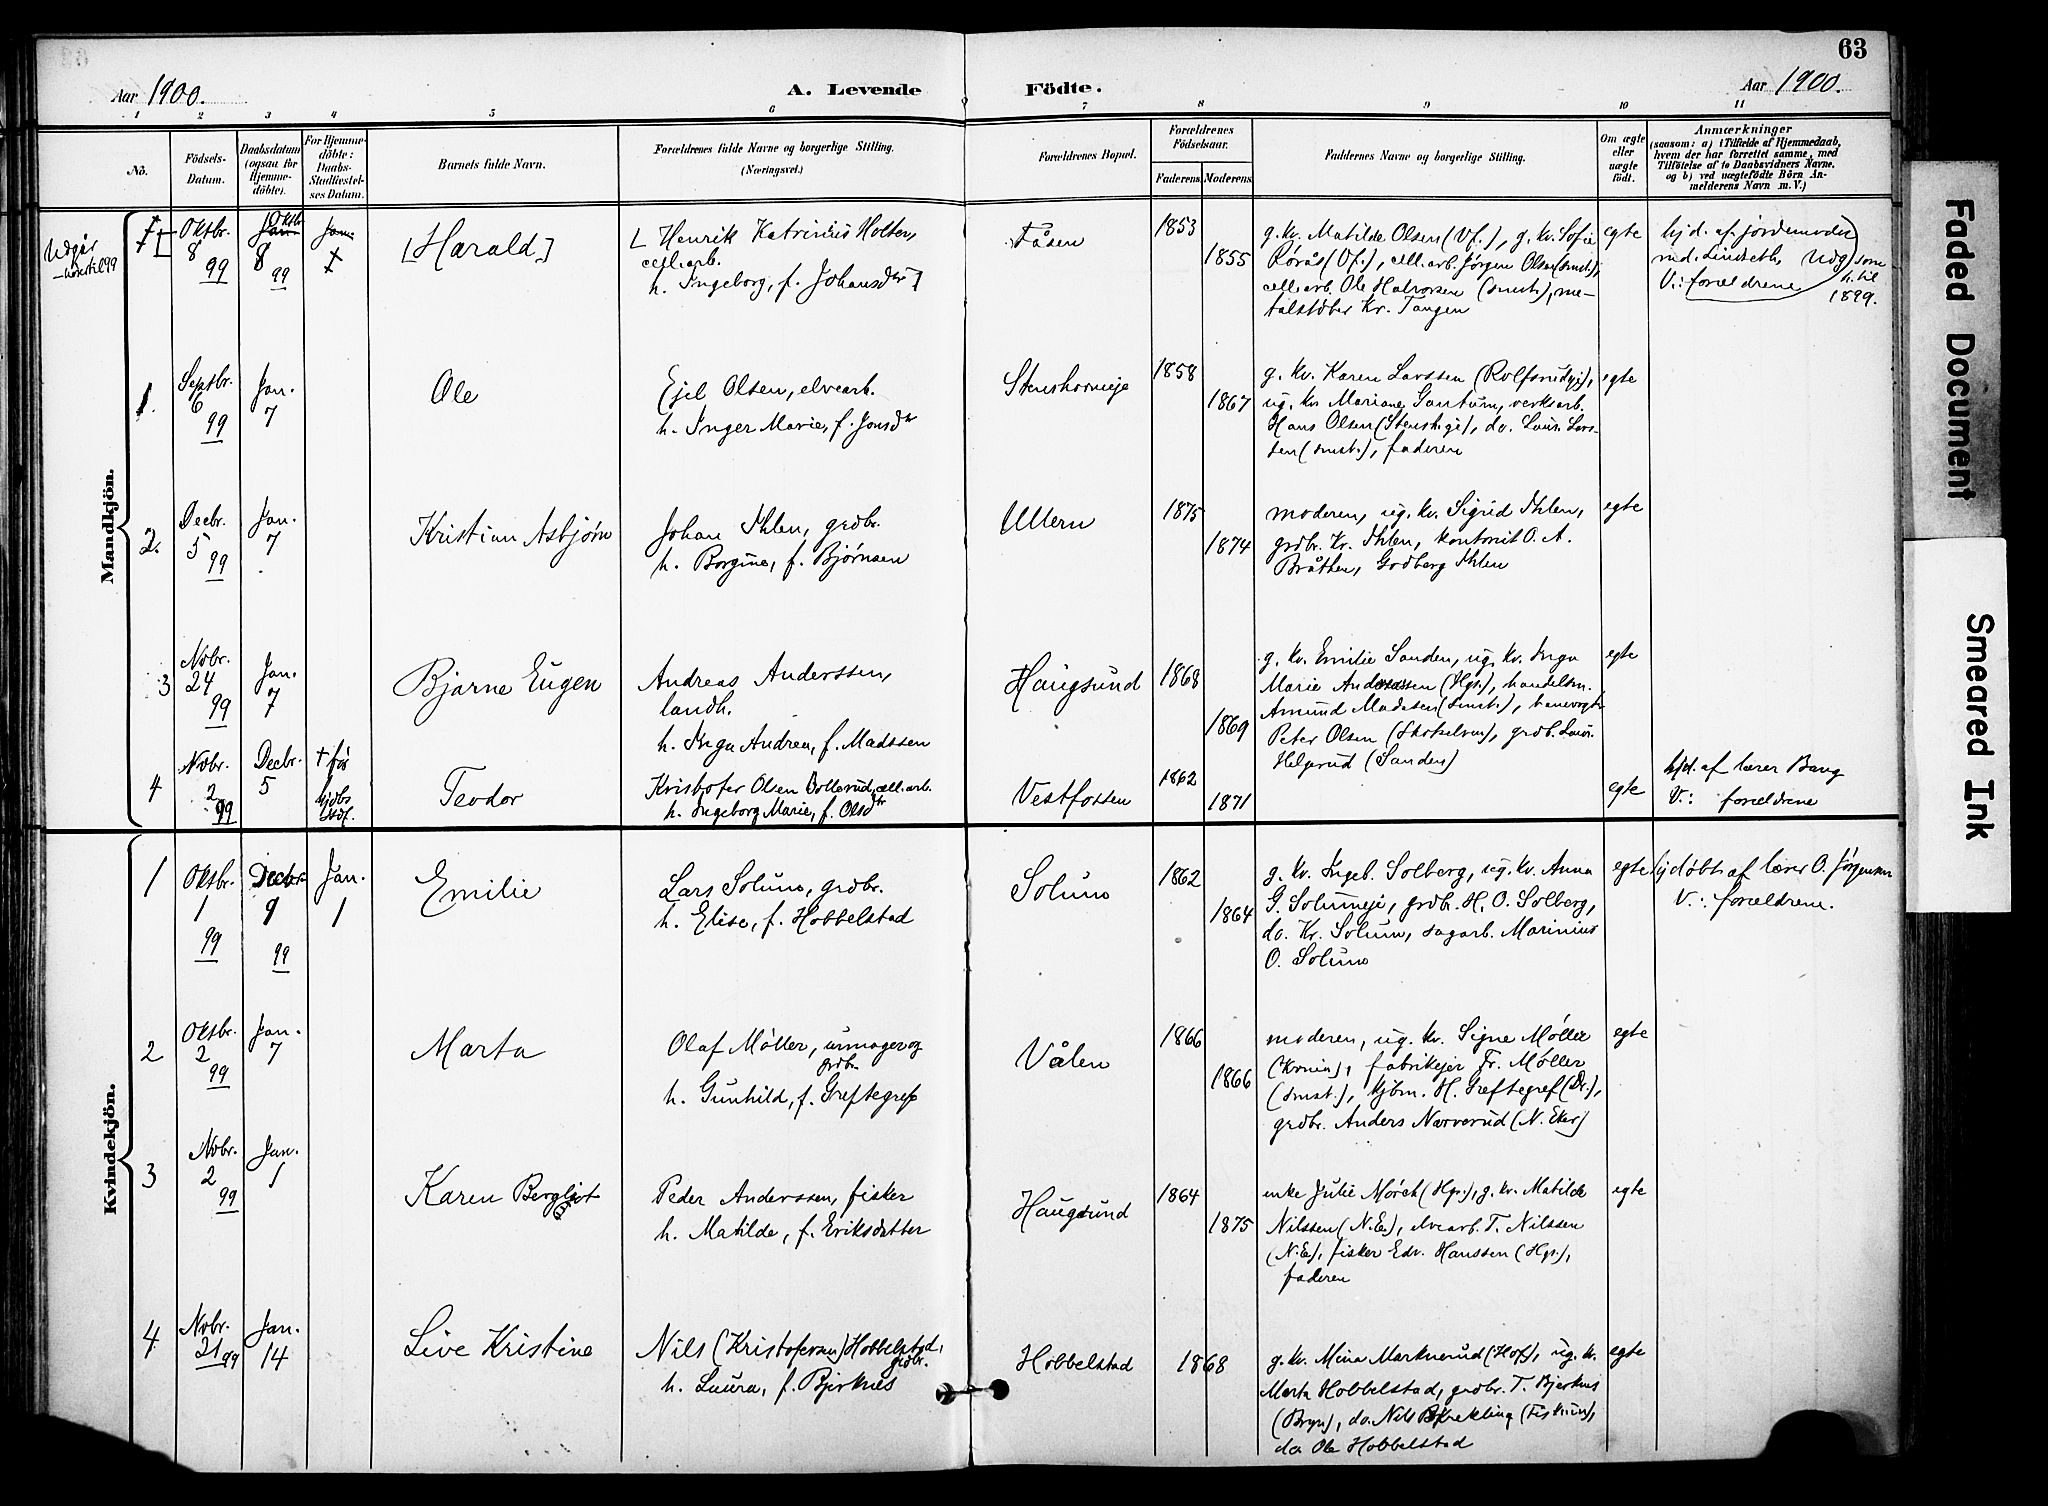 63
Aar 1900.
A. Levende Födte.
Aar 1900.
1 2 3 4 5 6 7 8 9 10 11
No.
Födsels-
Datum.
Daabsdatum
(ogsaa for
Hjemme-
döbte).
For Hjemme-
döbte:
Daabs-
Stadfæstel-
ses Datum.
Barnets fulde Navn.
Forældrenes fulde Navne og borgerlige Stilling.
(Næringsvei.)
Forældrenes Bopæl.
Forældrenes
Födselsaar.
Faderens. Moderens.
Faddernes Navne og borgerlige Stilling.
Om ægte
eller
uægte
født.
Anmærkninger
(saasom: a) i Tilfælde af Hjemmedaab,
hvem der har forrettet samme, med
Tilföielse af to Daabsvidners Navne,
og b) ved uægtefödte Börn An-
melderens Navn m. V.)
Mandkjön.
Udgår
Oktbr.
8
99
Oktb.
Jan.
8
99
Jan.
[Harald]
[Henrik Katrinius Holter,
cell.arb.
h. Ingeborg, f. Johansdtr]
Fåsen
1853
1855
g. kv. Matilde Olsen (Vf.), g. kv. Sofie
Rørås (Vf.), cell.arb. Jørgen Olsen (smst.),
cell.arb. Ole Halvorsen (smst.), me-
talstøber Kr. Tangen
egte
hjd. af jordemoder
md. Lindseth. Udg. som
V.: forældrene h. til
1899.
1.
Septbr.
6
99
Jan.
7
Ole
Ejel Olsen, elvearb.
h. Inger Marie, f. Jonsdtr
Stenshorneje
1858
1867
g. kv. Karen Larssen (Rolfsrudeje),
ug. kv. Mariane Santum, verksarb.
Hans Olsen (Stensh.eje), do. Laur. Lars-
sen (smst.), faderen
egte
2.
Decbr.
5
99
Jan.
7
Kristian Asbjørn
Johan Ihlen, grdbr.
h. Borgine, f. Bjørnsen
Ullern
1875
1874
moderen, ug. kv. Sigrid Ihlen,
grdbr. Kr. Ihlen, kontorist O. A.
Bråthen, Godberg Ihlen
egte
3
Novbr.
24
99
Jan.
7
Bjarne Eugen
Andreas Anderssen,
landh.
h. Inga Andrea, f. Madssen
Haugsund
1868
1869
g. kv. Emilie Sanden, ug. kv. Inga
Marie Anderssen (Hgs.), handelsm.
Amund Madssen (smst.), banevogter
Peter Olsen (Skotselven), grdb. Laur.
Helgerud (Sanden)
egte
4
Novbr.
2
99
Decbr.
5
† før
hjdbs
stdf.
Teodor
Kristofer Olsen Bollerud, cell.arb.
h. Ingeborg Marie, f. Olsdtr
Vestfossen
1862
1871
egte
hjd. af lærer Bang
V.: forældrene
Kvindekjön.
1
Oktbr.
1
99
Decbr
9
99
Jan.
1
Emilie
Lars Solum, grdbr.
h. Elise, f. Hobbelstad
Solum
1862
1864
g. kv. Ingeb. Solberg, ug. kv. Anna
G. Solumeje, grdbr. H. O. Solberg,
do. Kr. Solum, sagarb. Marinius
O. Solum
egte
hjdøbt af lærer O. Jørgensen
V.: forældrene.
2
Oktbr.
2
99
Jan.
7
Marta
Olaf Møller, urmager og
grdbr.
h. Gunhild, f. Greftegref
Vålen
1866
1866
moderen, ug. kv. Signe Møller
(Kronin), fabrikejer Fr. Møller
(smst.), kjbm. H. Greftegref (Dr.),
grdbr. Anders Narverud (N. Eker)
egte
3
Novbr.
2
99
Jan.
1
Karen Bergljot
Peder Anderssen, fisker
h. Matilde, f. Eriksdatter
Haugsund
1864
1875
enke Julie Mørch (Hgs.), g. kv. Matilde
Nilssen (N.E.), elvearb. T. Nilssen
(N.E.), fisker Edv. Hanssen (Hgs.),
faderen
egte
4
Novbr.
21 99
Jan.
14
Live Kristine
Nils (Kristofersen) Hobbelstad,
grdbr.
h. Laura, f. Bjerknes
Hobbelstad
1868
g. kv. Mina Marknerud (Hof), ug. k.
Marta Hobbelstad, grdbr. T. Bjerknes
(Bryn), do. Nils Brekling (Fiskum),
do. Ole Hobbelstad
egte
Faded Document
Smeared Ink